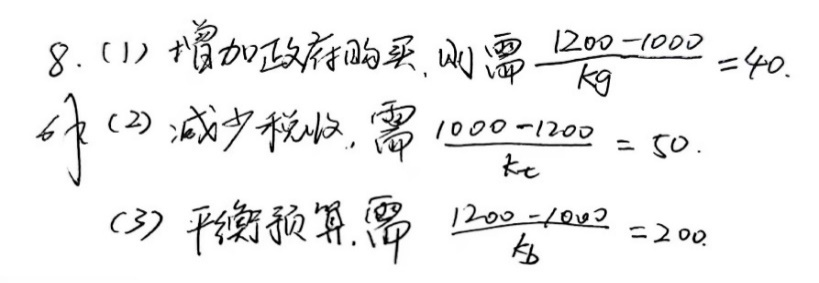 8.(1) 增加政府购买,则需 (1200-1000)/kg = 40.
(2) 减少税收,需 (1000-1200)/kt = 50.
(3) 平衡预算,需 (1200-1000)/kb = 200.